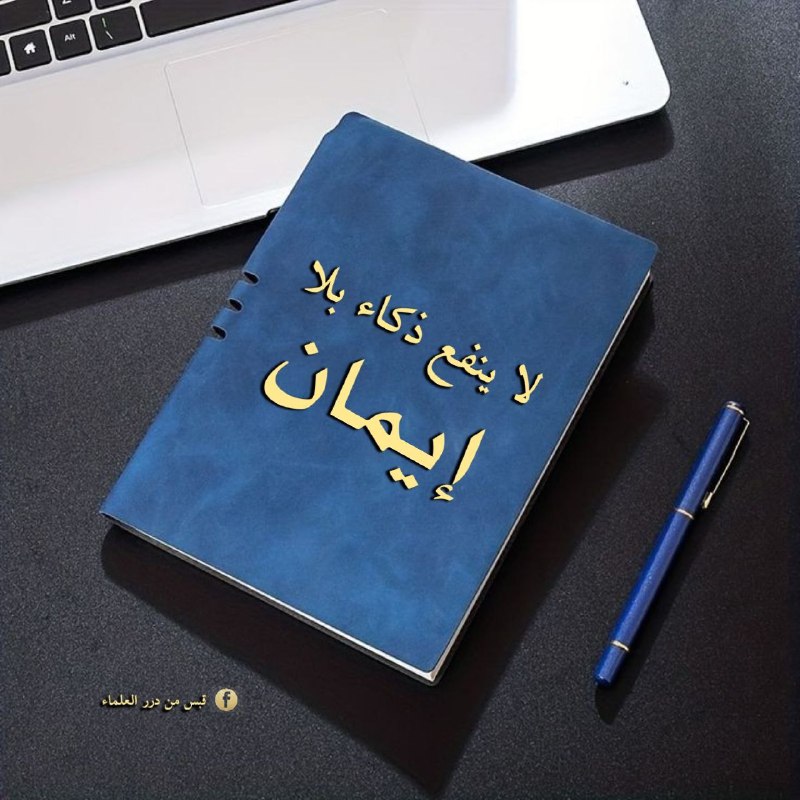 Alt
لا ينفع ذكاء بلا
إيمان
قبس من درر العلماء